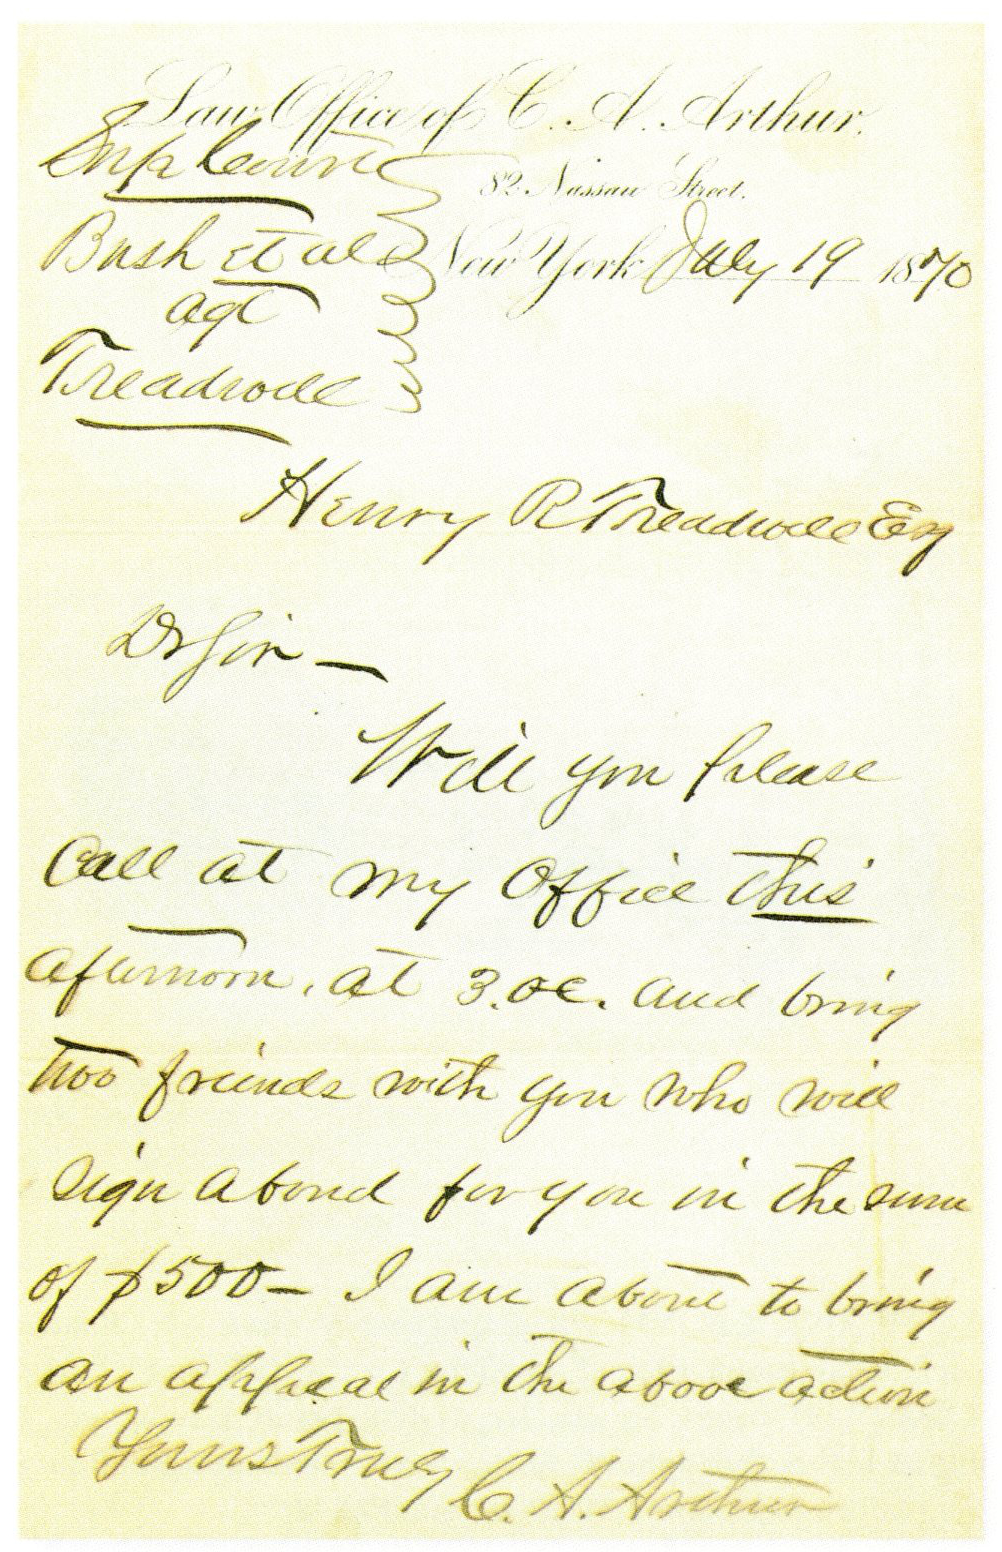 Law Office of C. A. Arthur.
82 Nassau Street.
New York July 19 1870
Sup Court
Bush et al
agt
Treadwell
Henry R Treadwell Esq
Dr Sir —
Will you please
Call at my Office this
afternoon, at 3. oc. and bring
two friends with you who will
sign a bond for you in the sum
of $500 — I am about to bring
an appeal in the above action
Yours Truly
C. A. Arthur